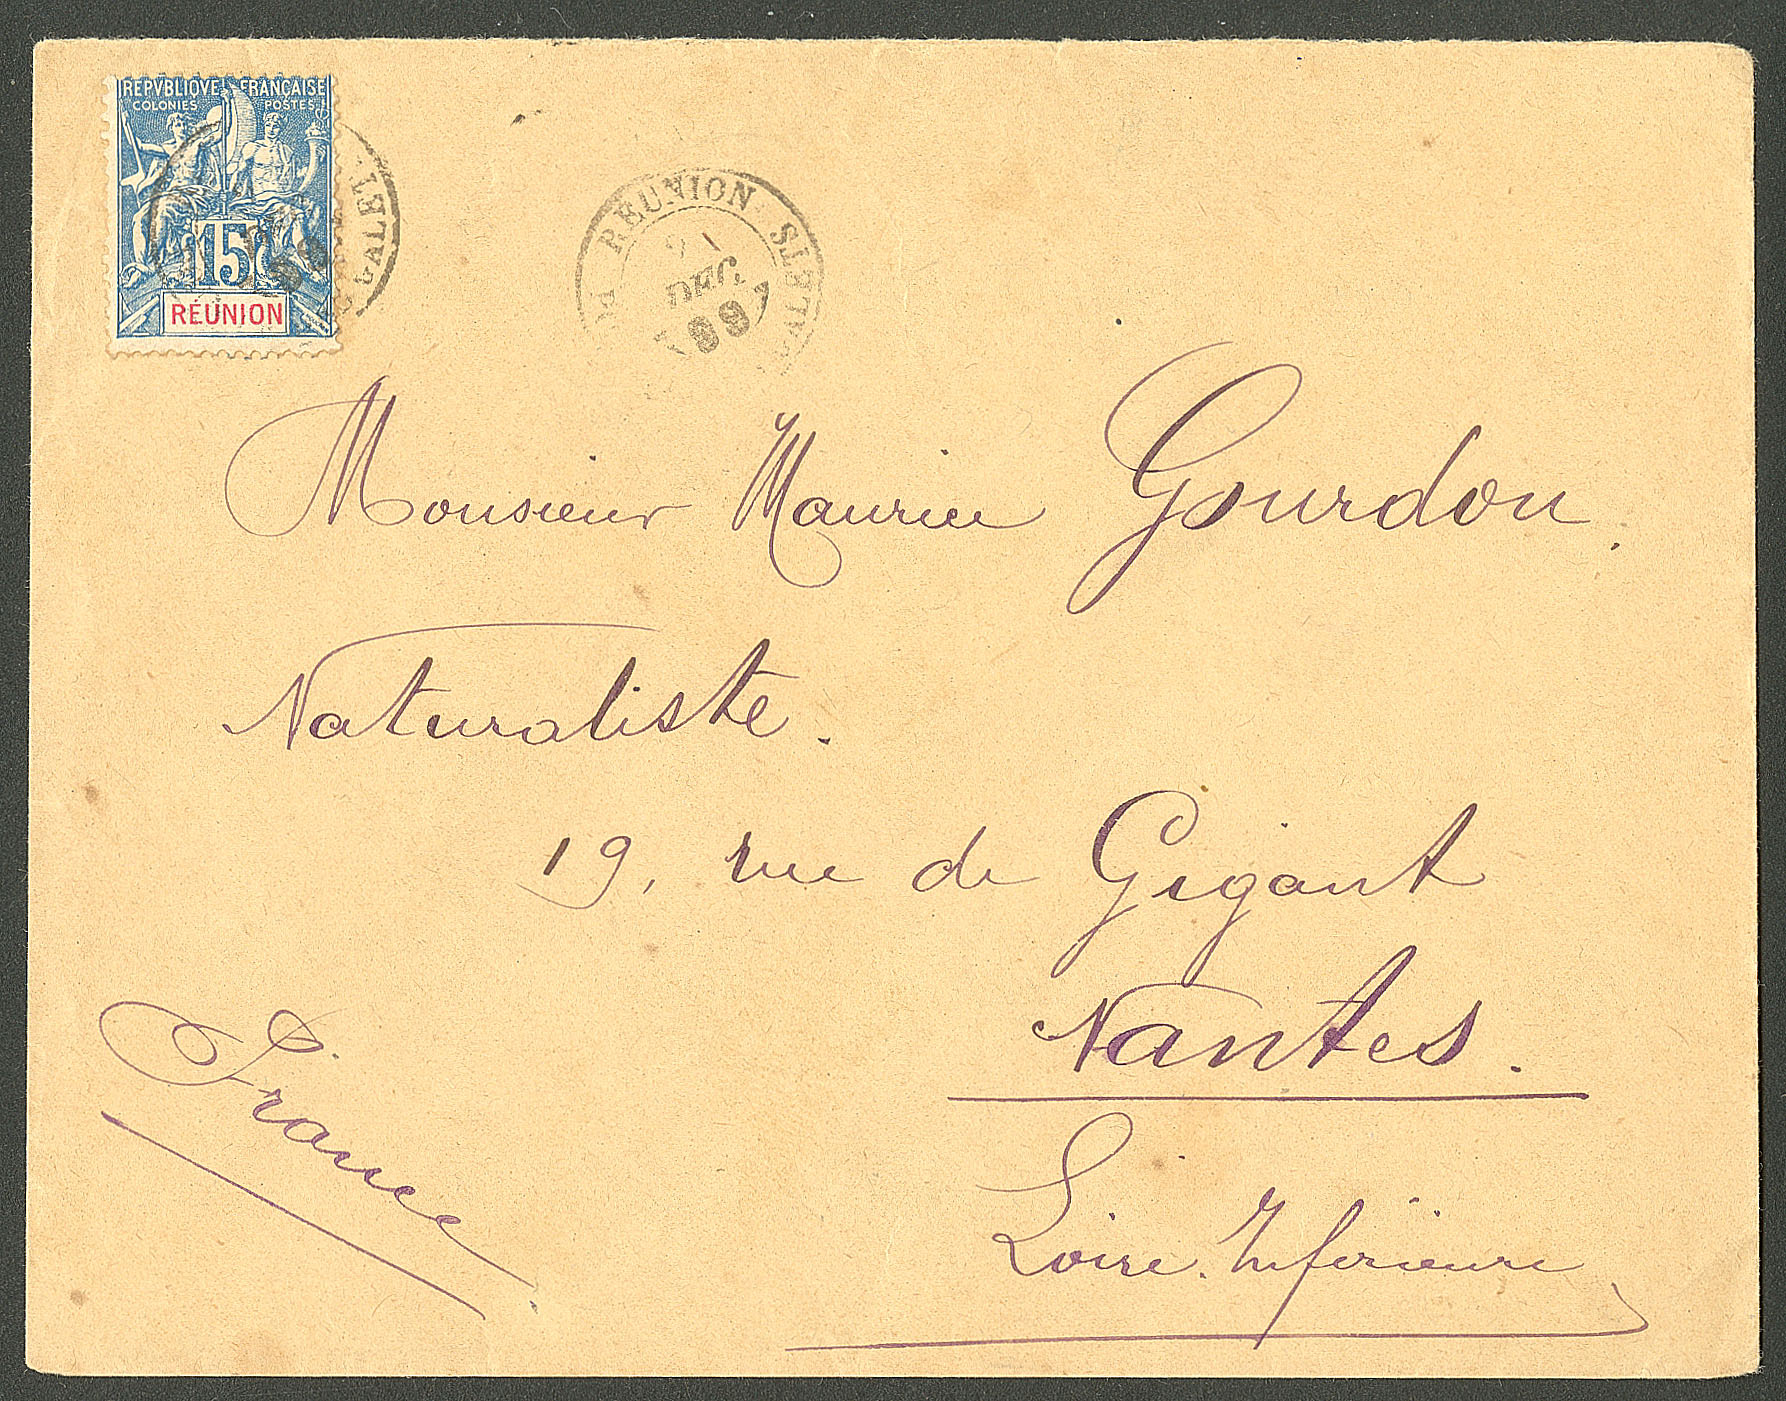 REPVBLIQVE FRANÇAISE
COLONIES POSTES
15
RÉUNION
GALETS
RÉUNION GALETS
DEC.
99
Monsieur Maurice Gourdon.
Naturaliste.
19, rue de Gigant
Nantes.
Loire. Inférieure
France